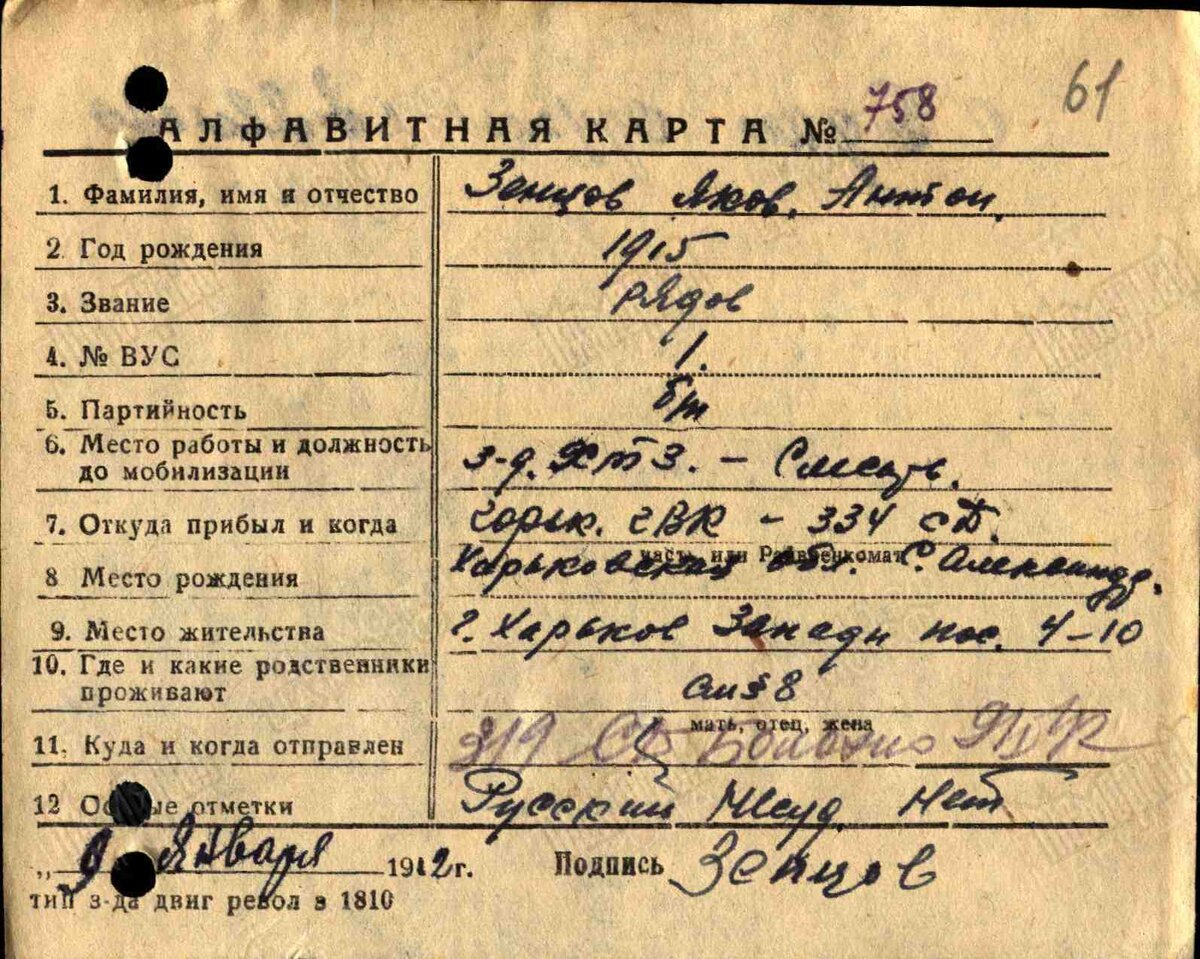 61
АЛФАВИТНАЯ КАРТА № 758
1. Фамилия, имя и отчество Зенцов Яков. Антон.
2. Год рождения 1915
3. Звание рядов
4. № ВУС 1.
5. Партийность б/п
6. Место работы и должность
до мобилизации з-д. ХТЗ. –
7. Откуда прибыл и когда Горьк. ГВК – 334 сд.
часть или Райвоенкомат
8 Место рождения Харьковская обл. С.
9. Место жительства г. Харьков Западн пос. 4–10
10. Где и какие родственники
проживают см § 8
мать, отец, жена
11. Куда и когда отправлен
12 Особые отметки Русский Несуд. Нет
„ 9 Января 1942 г. Подпись Зенцов
тип з-да двиг револ з 1810